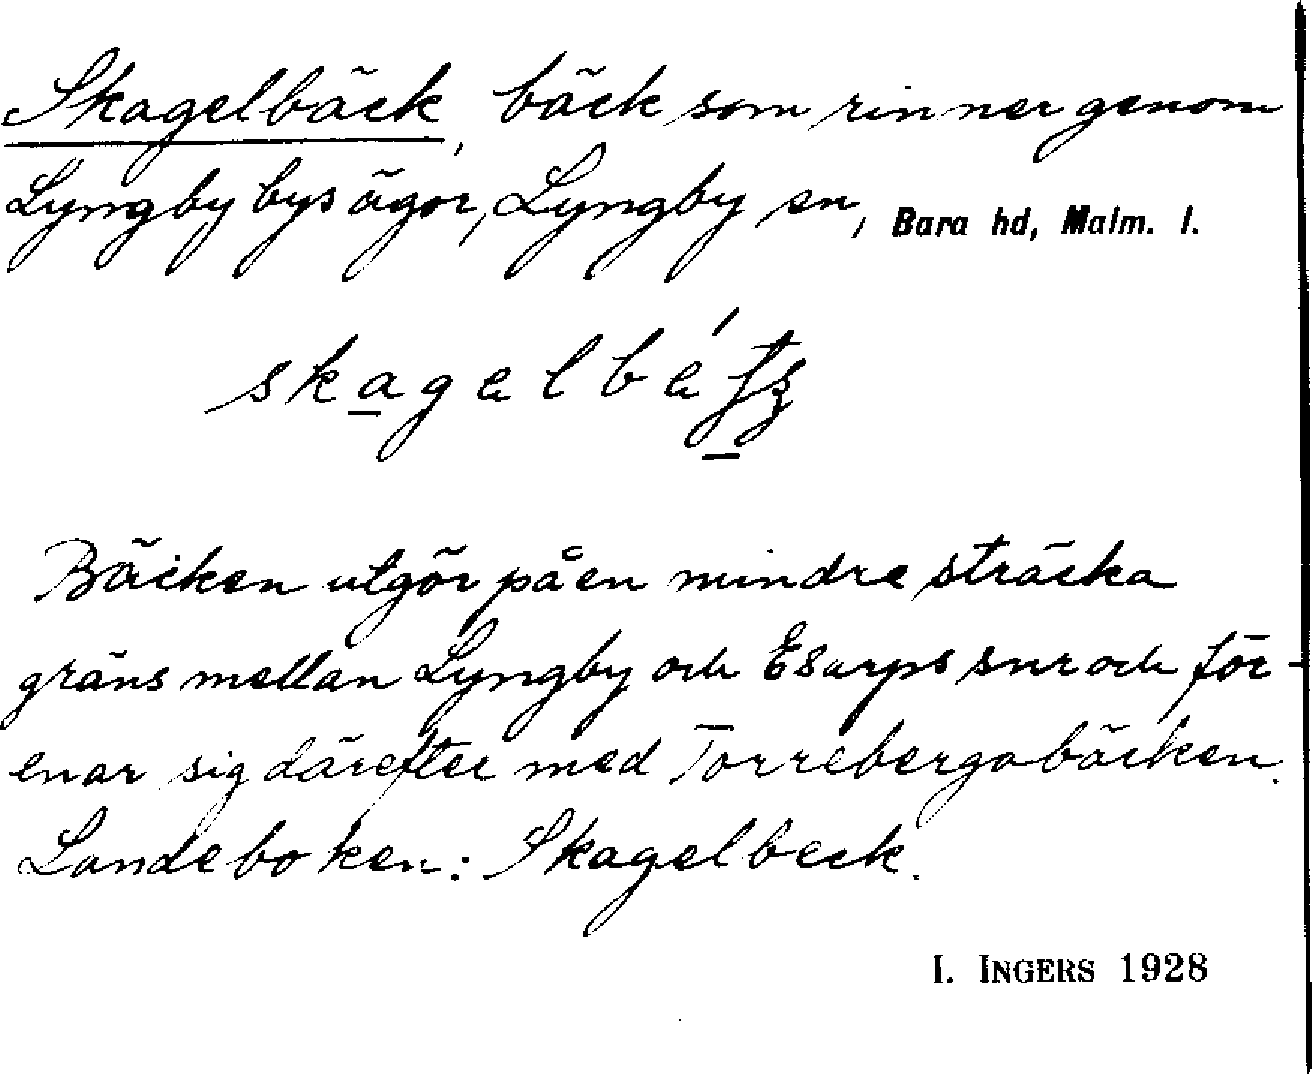 Skagelbäck, bäck som rinner genom
Lyngby bys ägor, Lyngby sn, Bara hd, Malm. l.
Bäcken utgör på en mindre sträcka
gräns mellan Lyngby och Esarps snr och för-
enar sig därefter med Torrebergabäcken.
Landeboken: Skagelbeck.
I. INGERS 1928